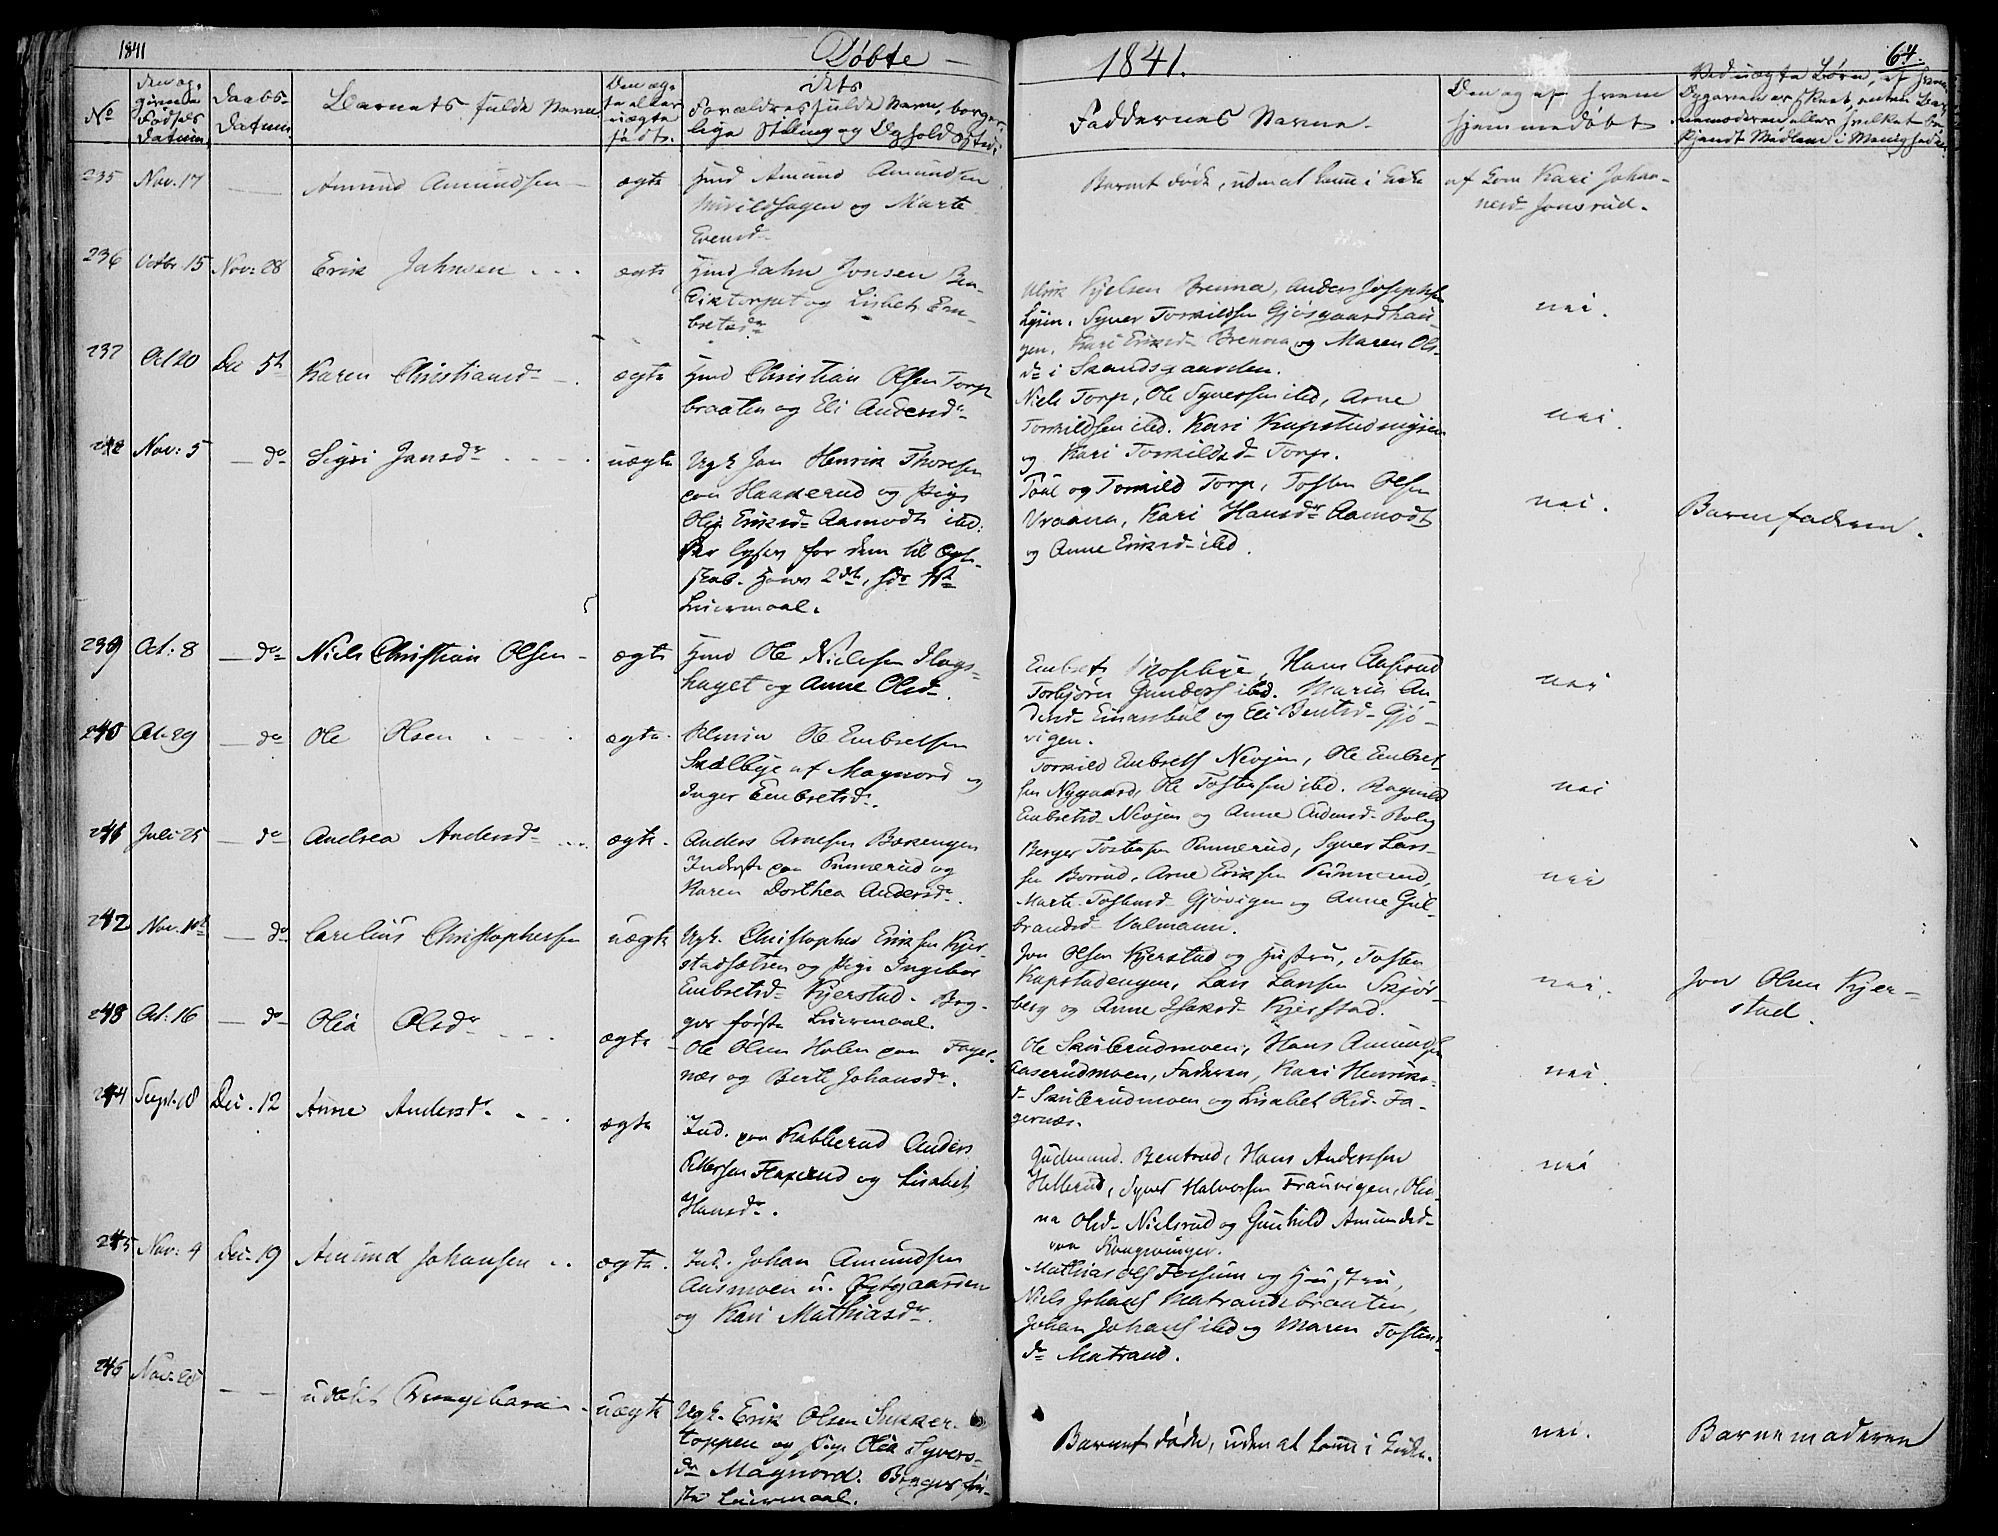 1841 Døbte 1841. 64.
No
Den angivende Fødsels Datum
Daabs-Datum
Barnets fulde Navn
Den ægte eller uægte fødte
dets Forældres fulde Navn, borgerlige Stilling og Ophold
Faddernes Navne.
Den og af hvem hjemmedøbt
235 Nov. 17 — Amund Amundsen — ægte
Hmd Amund Amundsen
og Marte
Evensd.
Barnet døde, uden at komme i Kirke
af Kari Johan-
nesd. Jonsrud.
236 Octbr 15 Nov: 28 Erik Jahnsen ægte
Hmd Jahn Jonsen Ben-
dixtorpet og Lisbet Em-
bretsdr
Ulrik Kjelsen Brenna, Anders Josephsen
Lysin. Syver Torkildsen Gjøsgaardhau-
gen, Kari Eriksd. Brenna og Maren Ols-
dr i Skandsgaarden.
nei.
237 Oct 20 Dec 5t Karen Christiansdr ægte
Hmd Christian Olsen Torp
braaten og Eli Andersdr
Niels Torp, Ole Syversen ibd, Arne
Torkildsen ibd. Kari Kapstadnigen
og Kari Torkildsd. Torp.
nei.
Nov: 5 — do Sigri Jansdr uægte
Ugk Jan Henrik Thoresen
paa Haakerud og Pige
Olia Eriksd. Aamodt ibd.
Der lyses for dem til Ægte-
skab. Hans 2det,
Leiermaal.
Poul og Torkild Torp, Tosten Olsen
Vraana, Kari Hansdr Aamodt
og Anne Eriksd. ibd.
nei.
Barnefaderen.
239 Oct: 8 — do Niels Christian Olsen — ægte
Hmd Ole Nielsen Flags-
haget og Anne Olsd.
Embret Mosebye, Hans Aaserud
Torbjørn Gunders ibd. Maria An-
dersd. og Eli Bentsd. Gjø-
vigen.
nei
240 Oct. 29 — do Ole Olsen ægte.
Ole Embretsen
Skalbye af Magnord og
Inger Embretsd.
Torkild Embrets Nevjen, Ole Embret-
sen Nygaard, Ole Tostensen ibd. Ragnild
Embretsd. Nevjen og Anne Andersd.
nei
241 Juli 25 — do Andrea Andersdr ægte.
Anders Arnesen Bekengen
Inderst paa Punnerud og
Karen Dorthea Andersdr.
Berger Tostensen Punnerud, Syver Lars-
sen Borrud, Arne Eriksen Punnerud,
Marte Tostensd. Gjøvigen og Anne Gul-
brandsd. Valmann.
nei
242 Nov. — do Carelius Christophersen uægte
Ugk. Christopher Eriksen Kjer-
stadsætren og Pige Ingebor
Embretsd. Kjerstad. Beg-
ges første Leiermaal.
Jon Olsen Kjerstad og Hustru, Tosten
Kapstadengen, Lars Larsen Skjøs-
berg og Anne Isaksd. Kjerstad.
nei.
Jon Olsen Kjer-
stad.
243 Oct: 16 — do Olia Olsdr ægte
Ole Olsen Holen paa Fager-
næs og Berte Johansdr.
Ole Skulerudmoen, Hans Amundsen
Aaserudmoen, Faderen, Kari Henriks-
dr Skulerudmoen og Lisabet Olsd. Fa-
gernæs.
nei.
244 Sept. 18 Dec. 12 Anne Andersdr ægte
Ind. paa Kabberud Anders
Pettersen Flaxerud og Lisabet
Hansdr.
Gudmund Bentrud, Hans Anderssen
Hellerud, Syver Halvorsen Frauvigen, Oli-
na Olsd. Nielsrud og Gunhild Amundsd.
paa Kongsvinger.
nei
245 Nov: 4 Dec. 19 Amund Johansen ægte.
Ind. Johan Amundsen
Aasmoen u. Østgaarden
og Kari Mathiasdr.
Mathias Ols Fossum og Hustru,
Niels Johans Matrandsbraaten,
Johan Johans ibd og Maren Tostens-
dr Matrand.
246 Nov: 20 — — udøbt Drengebarn uægte
Ugk. Erik Olsen Sukker-
toppen og Pige Olia Syvers-
dr Magnord. Begges før-
ste Leiermaal.
Barnet døde, uden at komme i Kirke.
nei.
Barnemoderen